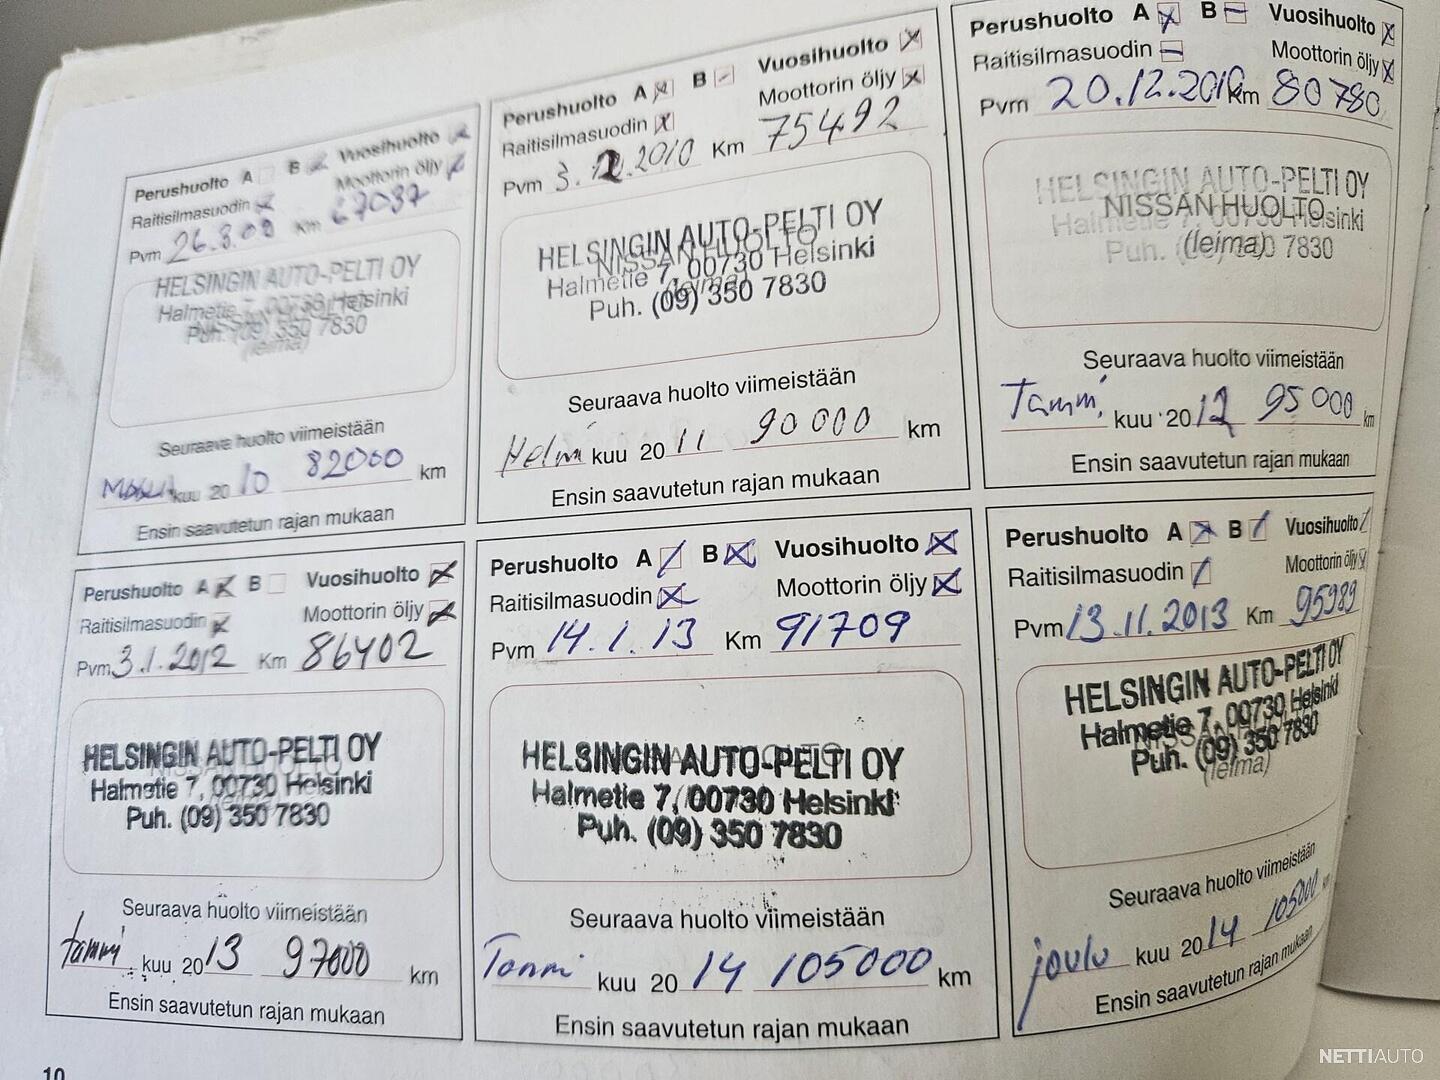 Perushuolto A B Vuosihuolto
Raitisilmasuodin Moottorin öljy
Pvm 26.8.09 Km 67037
HELSINGIN AUTO-PELTI OY
Halmetie 7, 00730 Helsinki
Puh. (09) 350 7830
(leima)
Seuraava huolto viimeistään
kuu 2010 82000 km
Ensin saavutetun rajan mukaan
Perushuolto A B Vuosihuolto
Raitisilmasuodin Moottorin öljy
Pvm 3. .2010 Km 75492
HELSINGIN AUTO-PELTI OY
NISSAN HUOLTO
Halmetie 7, 00730 Helsinki
(leima)
Puh. (09) 350 7830
Seuraava huolto viimeistään
Helmi kuu 2011 90000 km
Ensin saavutetun rajan mukaan
Perushuolto A B Vuosihuolto
Raitisilmasuodin Moottorin öljy
Pvm 20.12.2010 Km 80780
HELSINGIN AUTO-PELTI OY
NISSAN HUOLTO
Halmetie 7, 00730 Helsinki
(leima)
Puh. (09) 350 7830
Seuraava huolto viimeistään
Tammi kuu 2012 95000 km
Ensin saavutetun rajan mukaan
Perushuolto A B Vuosihuolto
Raitisilmasuodin Moottorin öljy
Pvm 3.1.2012 Km 86402
HELSINGIN AUTO-PELTI OY
Halmetie 7, 00730 Helsinki
Puh. (09) 350 7830
Seuraava huolto viimeistään
tammi kuu 2013 97000 km
Ensin saavutetun rajan mukaan
Perushuolto A B Vuosihuolto
Raitisilmasuodin Moottorin öljy
Pvm 14.1.13 Km 91709
HELSINGIN AUTO-PELTI OY
Halmetie 7, 00730 Helsinki
Puh. (09) 350 7830
Seuraava huolto viimeistään
Tammi kuu 2014 105000 km
Ensin saavutetun rajan mukaan
Perushuolto A B Vuosihuolto
Raitisilmasuodin Moottorin öljy
Pvm 13.11.2013 Km 95989
HELSINGIN AUTO-PELTI OY
Halmetie 7, 00730 Helsinki
NISSAN
Puh. (09) 350 7830
(leima)
Seuraava huolto viimeistään
joulu kuu 2014 105000 km
Ensin saavutetun rajan mukaan
10
NETTIAUTO